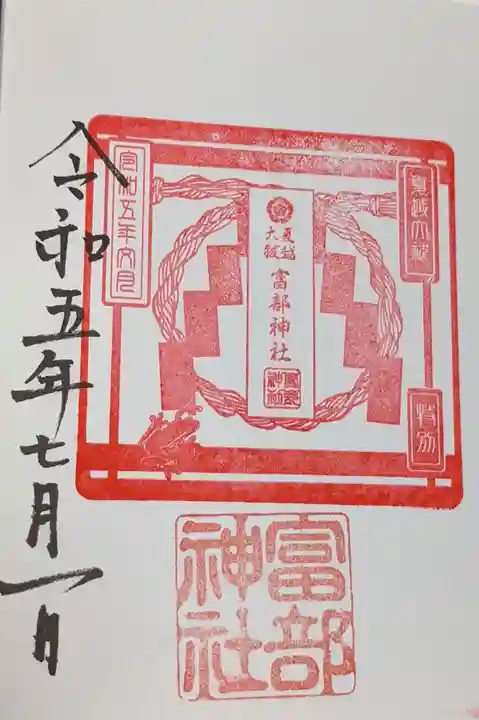 夏越大祓
特別
夏越
大祓
富部神社
富部
神社
令和五年六月
富部
神社
令和五年七月一日